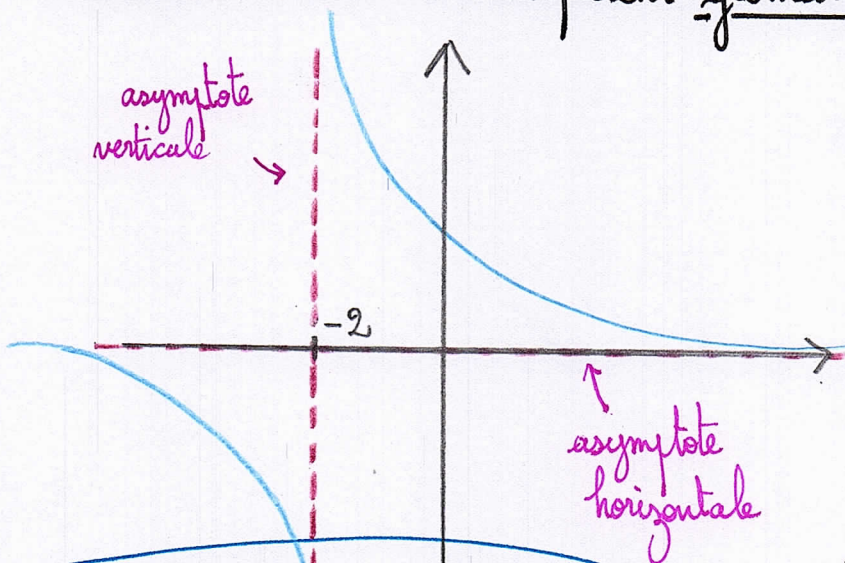 asymptote
verticale
-2
asymptote
horizontale